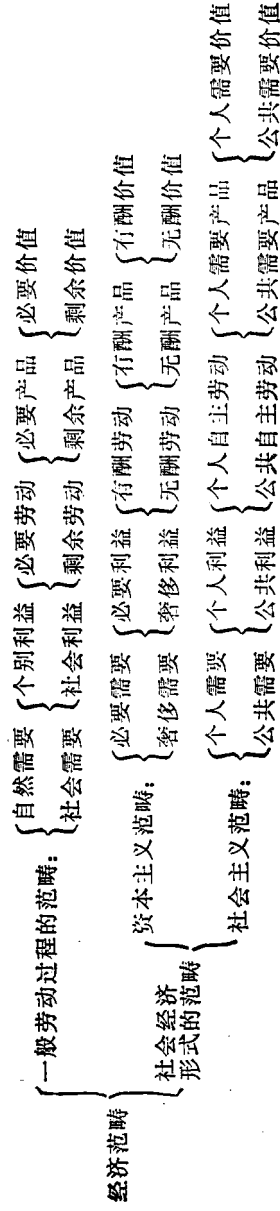 经济范畴
一般劳动过程的范畴：
{自然需要 {个别利益 {必要劳动 {必要产品 {必要价值
{社会需要 {社会利益 {剩余劳动 {剩余产品 {剩余价值
社会经济
形式的范畴
资本主义范畴：
{必要需要 {必要利益 {有酬劳动 {有酬产品 {有酬价值
{奢侈需要 {奢侈利益 {无酬劳动 {无酬产品 {无酬价值
社会主义范畴：
{个人需要 {个人利益 {个人自主劳动 {个人需要产品 {个人需要价值
{公共需要 {公共利益 {公共自主劳动 {公共需要产品 {公共需要价值